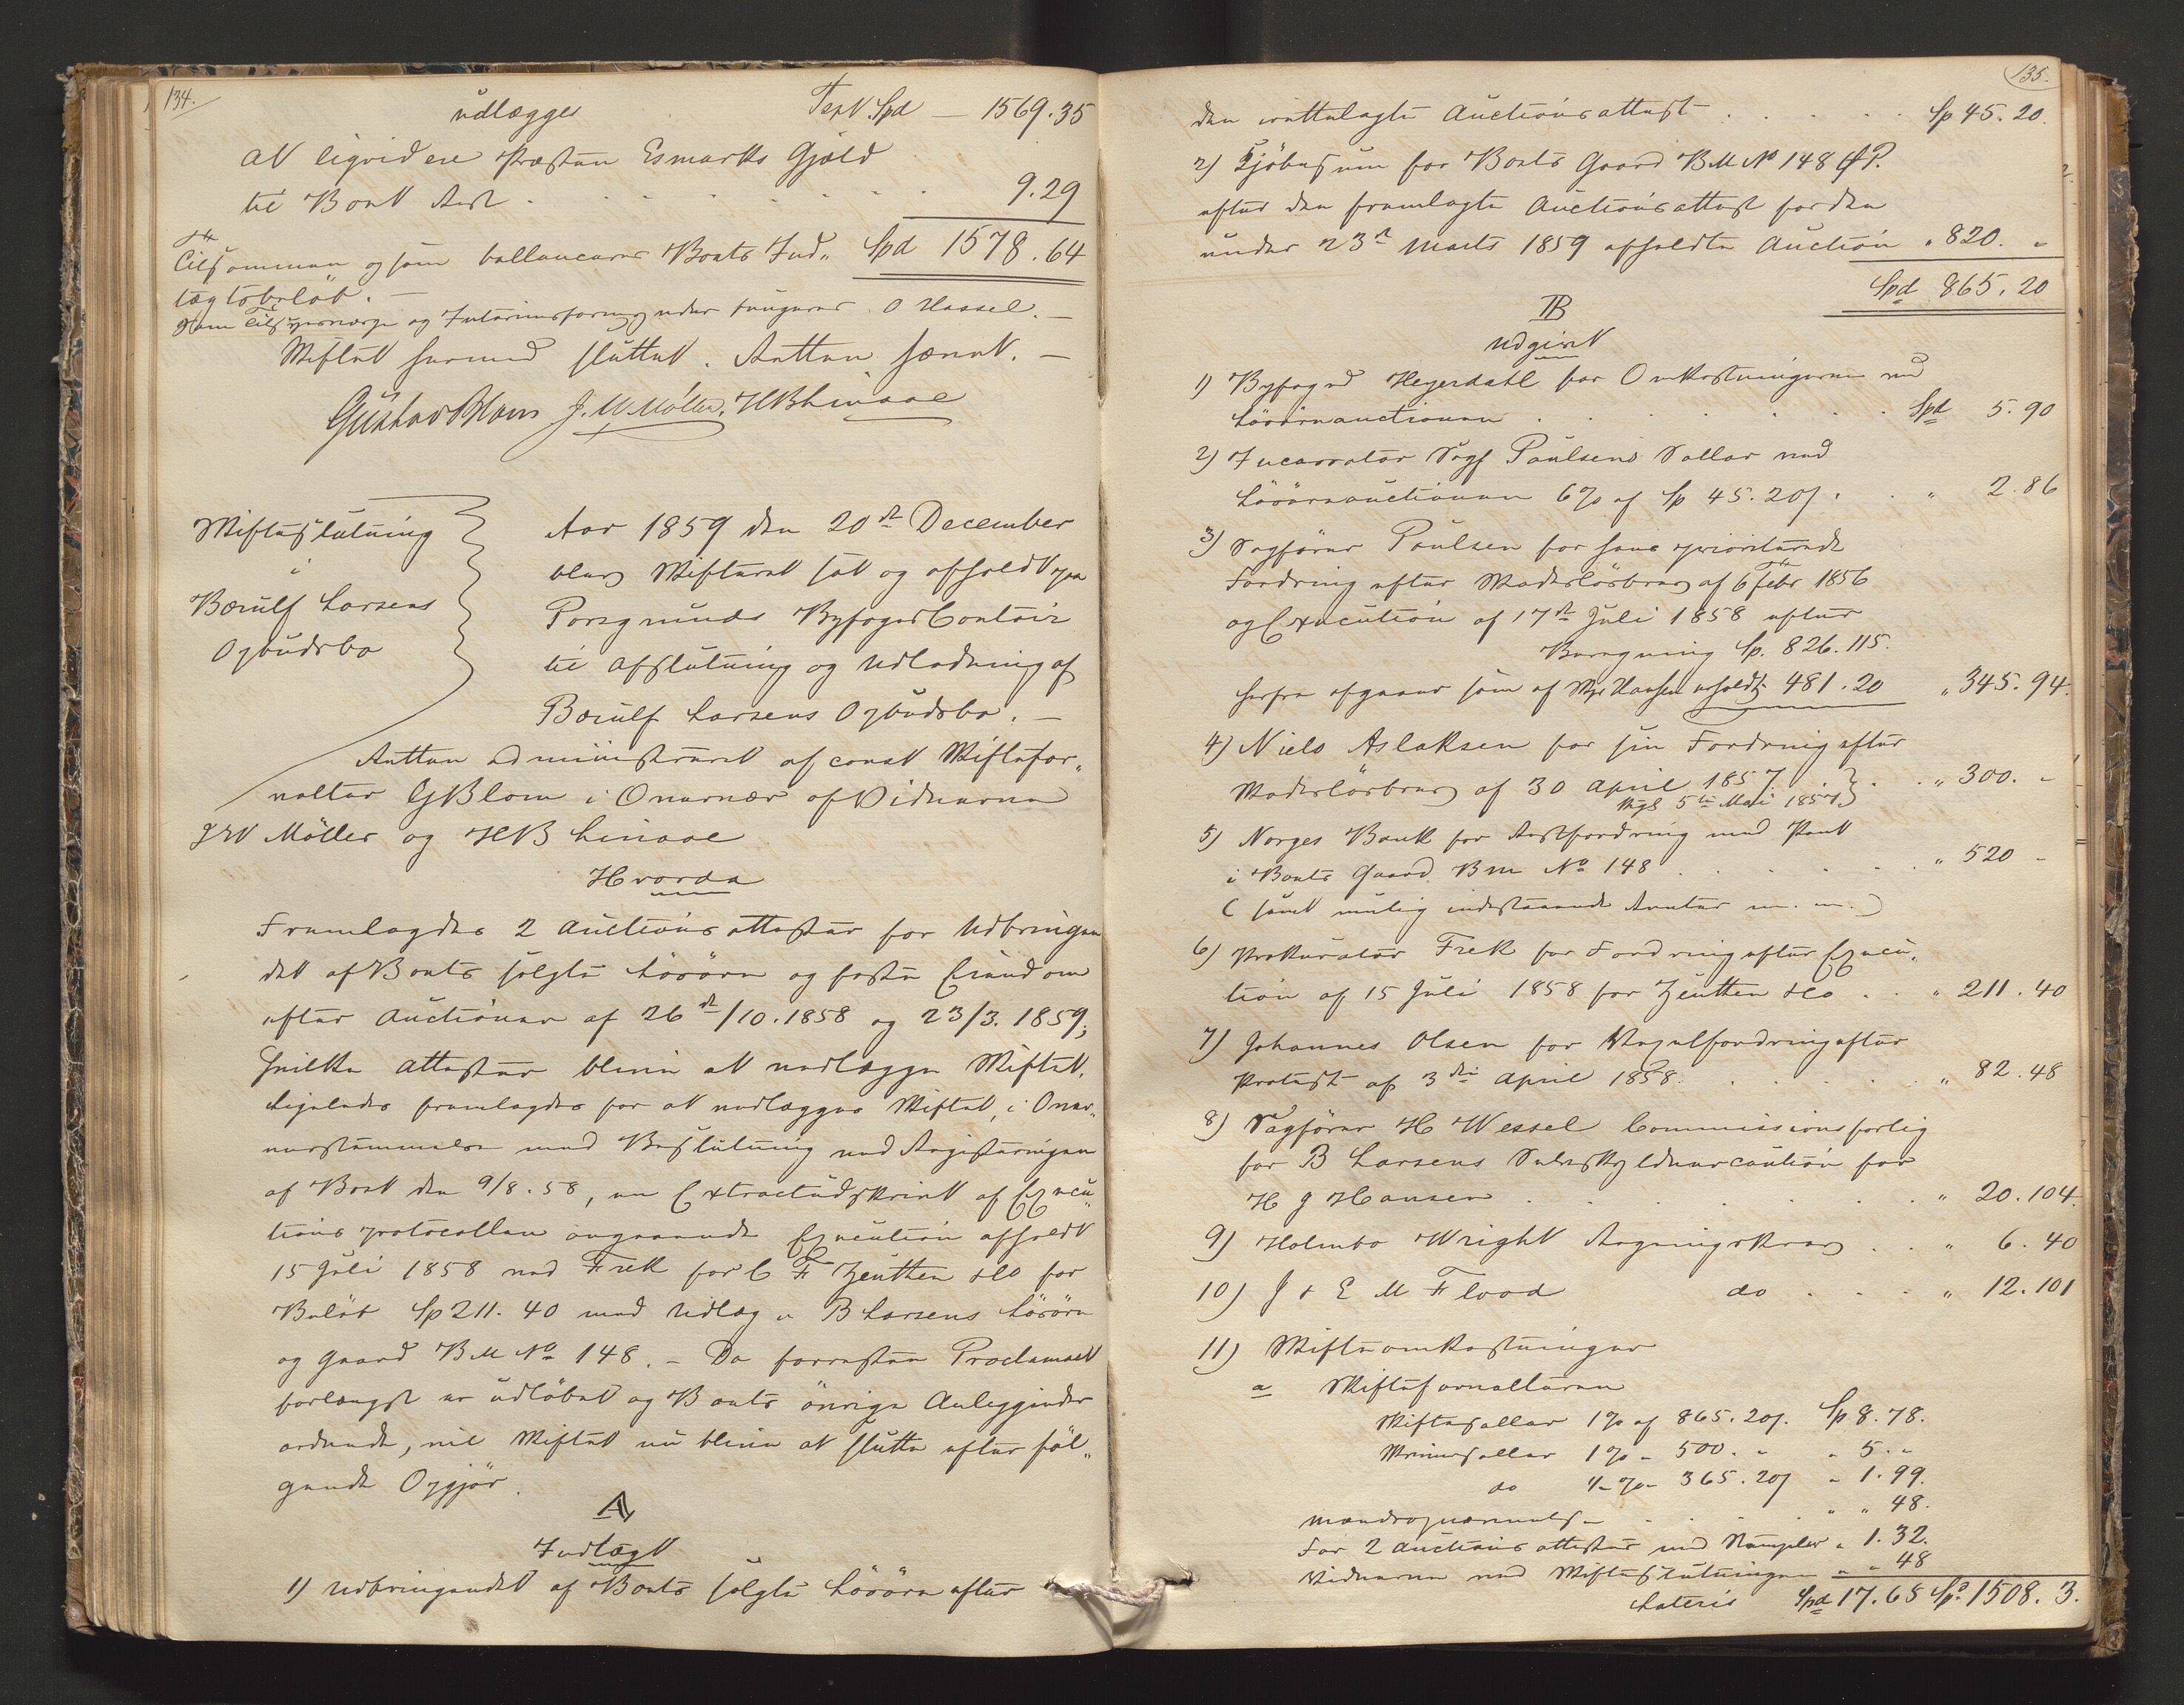 134.
udlægges Trpt Spd — 1569.35
at liqvidere Præsten Esmarks Gjæld
til Boet Rest . . . . . . 9.29
Tilsammen og som ballancerer Boets Ind- Spd 1578.64
tægtsbeløb. —
Som Tilsynsværge og fungerer O Hassel. —
Skiftet hermed sluttet. Retten hævet. —
Gustav Blom J. W. Möller. HBLinaae
Skifteslutning
i
Bærulf Larsens
Opbudsbo
Aar 1859 den 20de December
blev Skifteret sat og afholdt paa
Porsgrunds Byfoged Contoir
til Afslutning og Udlodning af
Bærulf Larsens Opbudsbo. —
Retten administreret af const Skiftefor-
valter GBlom i Overvær af Vidnerne
JW Möller og HB Linaae
Hvorda
Fremlagdes 2 Auctionsattester for Udbringen
det af Boets solgte Løsøre og faste Eiendom
efter Auctioner af 26de/10.1858 og 23/3.1859;
hvilke Attester blive at vedlægge Skiftet.
Ligeledes fremlagdes for at vedlægges Skiftet, i Over-
eensstemmelse med Beslutning ved Registeringen
af Boet den 9/8.58, en Extractudskrivt af Execu-
tions protocollen angaaende Execution afholdt
15 Juli 1858 ved Frek for C F Zeuthen & Co for
Beløb Sp 211.40 med Udlæg i B Larsens Løsøre
og Gaard BM No 148. — Da forresten Proclamaet
forlængst er udløbet og Boets øvrige Anliggender
ordnede, vil Skiftet nu blive at slutte efter føl-
gende Opgjør.
A
Indtægt
1) Udbringendet af Boets solgte Løsøre efter
135.
den irettelagte Auctionsattest . . . . . Sp 45.20.
2) Kjøbesum for Boets Gaard BM No 148 ØP.
efter den fremlagte Auctionsattest for den
under 23de Marts 1859 afholdte Auction " 820. "
Spd 865.20
B
Udgivt
1) Byfoged Heyerdahl for Omkostningerne ved
Løsøreauctionen . . . . . . Spd 5.90
2) Incassator Sagf Paulsens Sallar ved
Løsøreauctionen 6% af Sp 45.20 s. . . " 2.86
3) Sagfører Paulsen for hans prioriterede
Fordring efter Skadesløsbrev af 6te Febr 1856
og Execution af 17de Juli 1858 efter
Beregning Sp. 826.115.
herfra afgaaer som af Skpr Hansen erholdt 481.20 " 345.94.
4) Niels Aslaksen for sin Fordring efter
Skadesløsbrev af 30 April 1857 . . . " 300. "
5te Mai 1857
5) Norges Bank for Restfordring med Pant
i Boets Gaard BM No 148 . . . . . " 520 "
(samt mulig indestaaende Renter m. m.)
6) Prokurator Frek for Fordring efter Execu-
tion af 15 Juli 1858 for Zeuthen & Co . . " 211.40
7) Johannes Olsen for Vexelfordring efter
Protest af 3die April 1858. . . . . . " 82.48
8) Sagfører H Wessel Commissionsforlig
for B Larsens Selvskyldnercaution for
H J Hansen . . . . . . . " 20.104.
9) Holmbo Wright Regningskrav . . " 6.40
10) J & E M Flood do . . . " 12.101
11) Skifteomkostninger
a Skifteforvalteren
Skiftesallar 1% af 865.20 s. Sp 8.78.
Skriversallar 1% " 500. " " 5. "
do ½% " 365.20 s " 1.99.
. . . " " 48.
For 2 Auctionsattester med Stempler " 1.32.
Vidnerne ved Skifteslutningen " " 48
Lateris Spd 17.65 Sp. 1508.3.